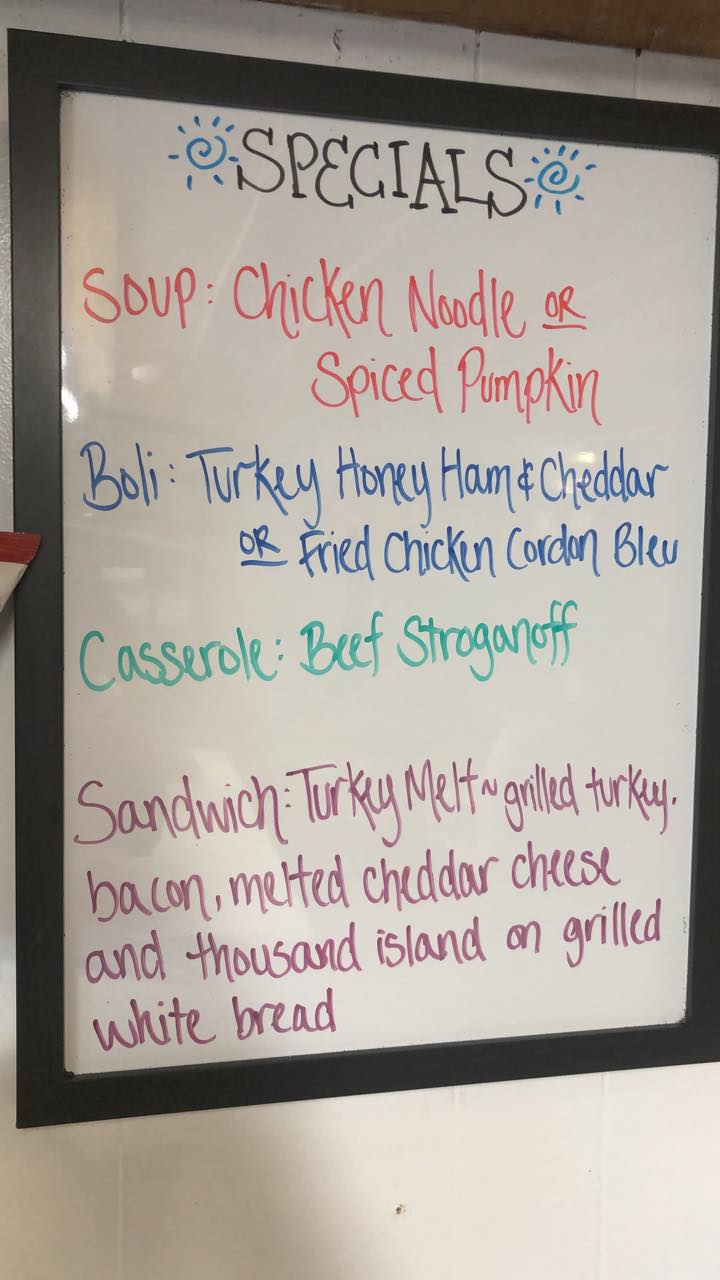 SPECIALS
Soup: Chicken Noodle OR
Spiced Pumpkin
Boli: Turkey Honey Ham & Cheddar
OR Fried Chicken Cordon Bleu
Casserole: Beef Stroganoff
Sandwich: Turkey Melt ~ grilled turkey,
bacon, melted cheddar cheese
and thousand island on grilled
white bread